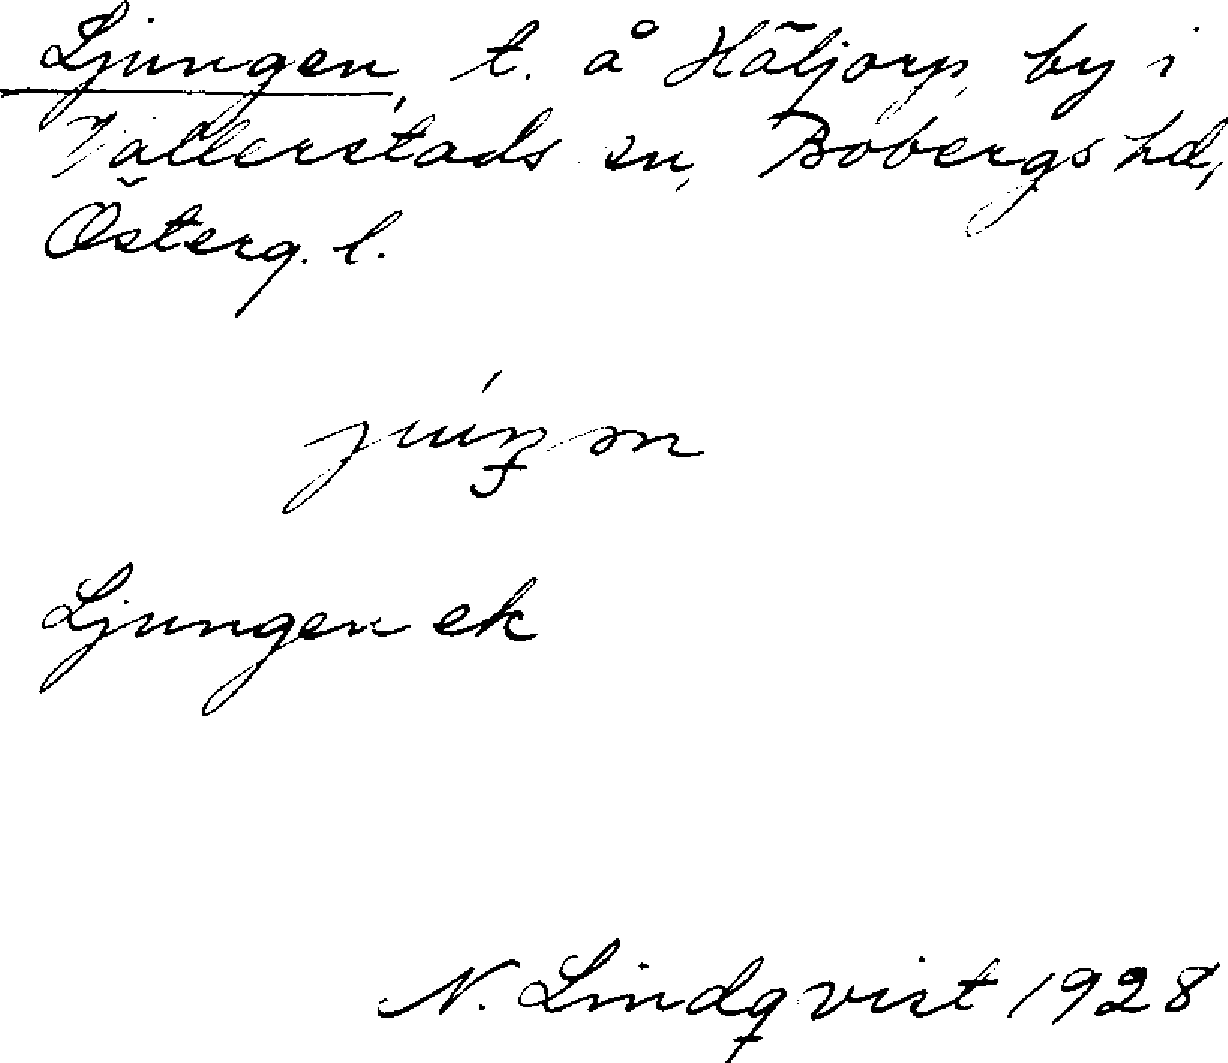 Ljungen, t. å Häljorp, by i
Vallerstads sn, Bobergs hd,
Österg. l.
Ljungen ek
N. Lindqvist 1928